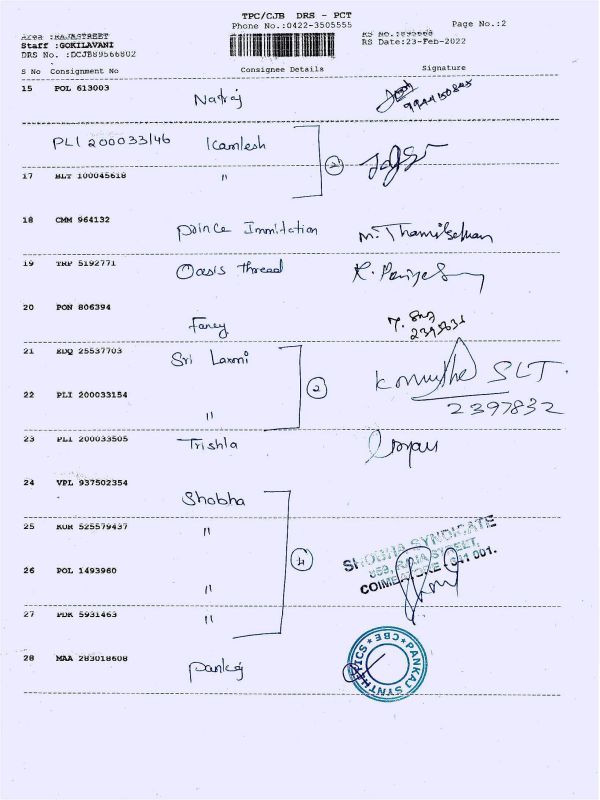 TPC/CJB DRS - PCT
Phone No.:0422-3505555
Page No.:2
Area :RAJASTREET
Staff :GOKILAVANI
RS No.:895668
DRS No. :DCJB89566802
RS Date:23-Feb-2022
S No Consignment No Consignee Details Signature
15 POL 613003 Natraj
PLI 200033146 Kamlesh 2
17 BLT 100045618 "
18 CMM 964132 Prince Immitation M. Thamilselvan
19 TRP 5192771 Oasis thread
20 PON 806394 Fancy
21 EDQ 25537703 Sri Laxmi
2 SLT.
22 PLI 200033154 " 2397832
23 PLI 200033505 Trishla
24 VPL 937502354 Shobha
25 KUR 525579437 "
4 SHOBHA SYNDICATE
859, RAJA STREET,
COIMBATORE - 641 001.
26 POL 1493960 "
27 PDK 5931463 "
28 MAA 283018608 Pankaj
PANKAJ SYNTHETICS * CBE *